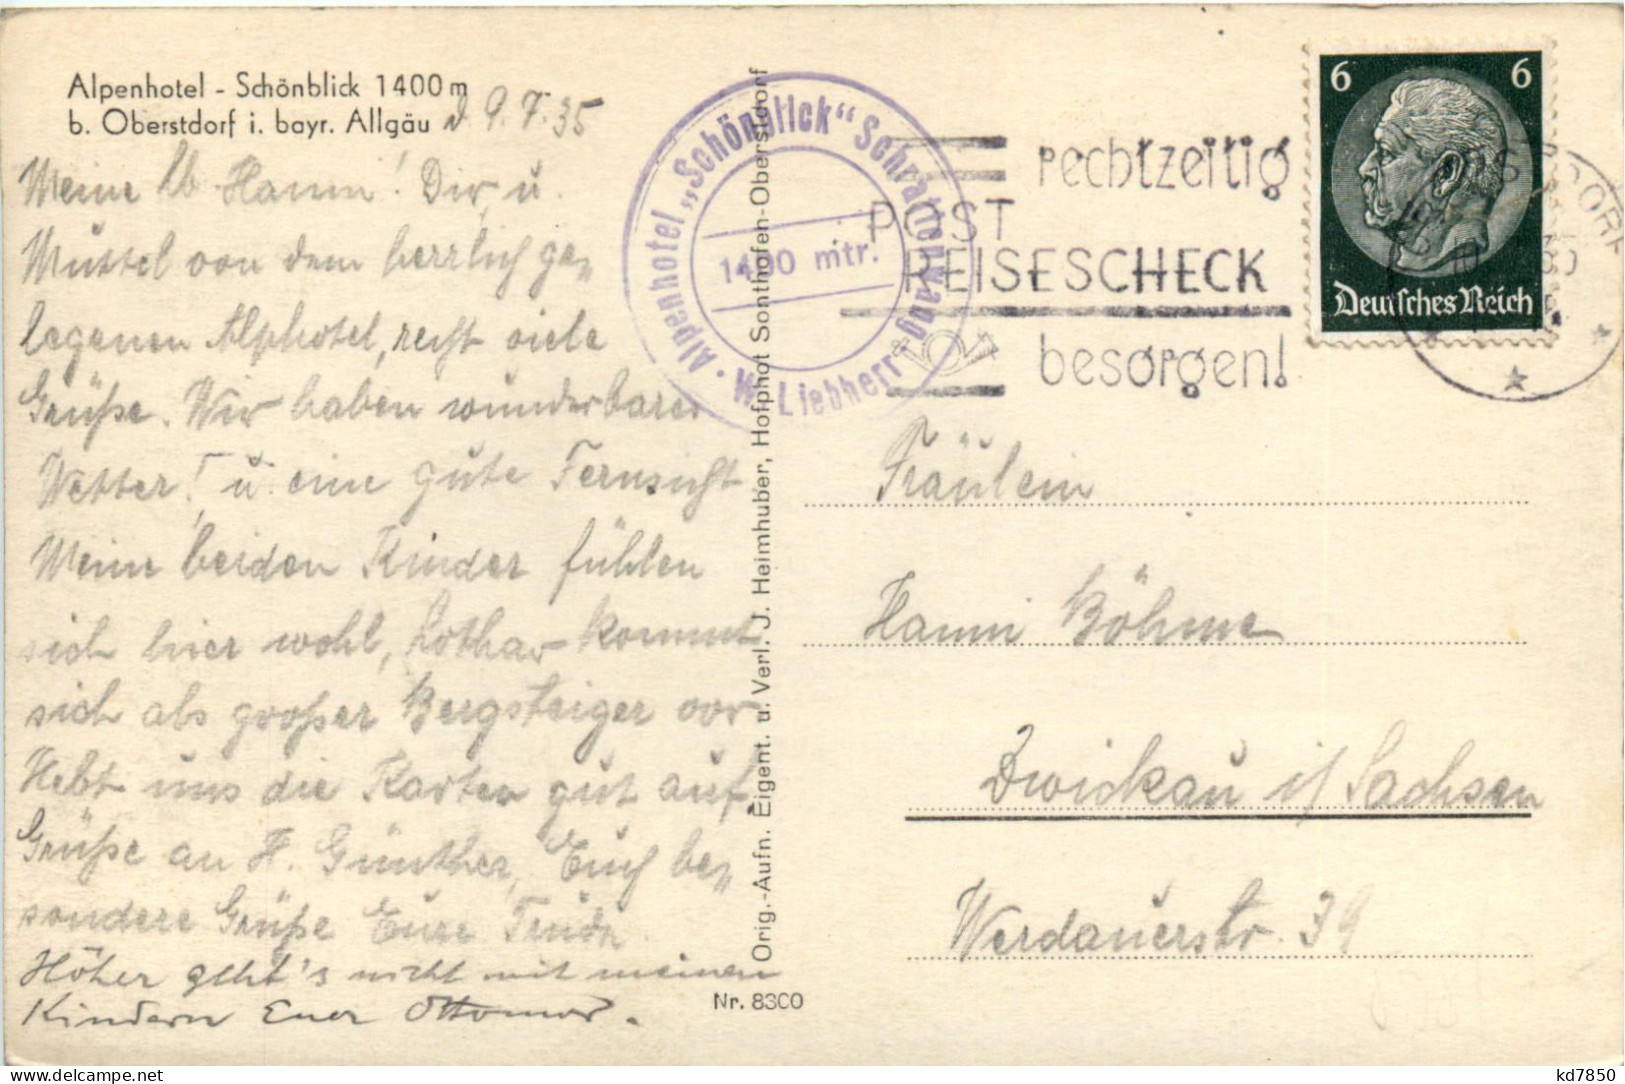 Alpenhotel - Schönblick 1400 m
b. Oberstdorf i. bayr. Allgäu
d 9.7.35
Meine lb. Hanni! Dir u.
Muttel von dem herrlich ge„
legenen Alphotel, recht viele
Grüße. Wir haben wunderbares
Wetter! u. eine gute Fernsicht
Meine beiden Kinder fühlen
sich hier wohl, Lothar kommt
sich als großer Bergsteiger vor
Hebt uns die Karten gut auf.
Grüße an H. Günther, Euch be„
sondere Grüße Eure
Höher geht's nicht mit meinen
Kindern Euer Ottomar.
Alpenhotel „Schönblick“ Schrattenwang
1400 mtr.
W. Liebherr
Orig.-Aufn. Eigent. u. Verl. J. Heimhuber, Hofphot Sonthofen-Oberstdorf
Nr. 8300
rechtzeitig
POST
REISESCHECK
besorgen!
6 6
Deutsches Reich
Fräulein
Hanni Böhme
Zwickau i/ Sachsen
Werdauerstr. 39
kd7850